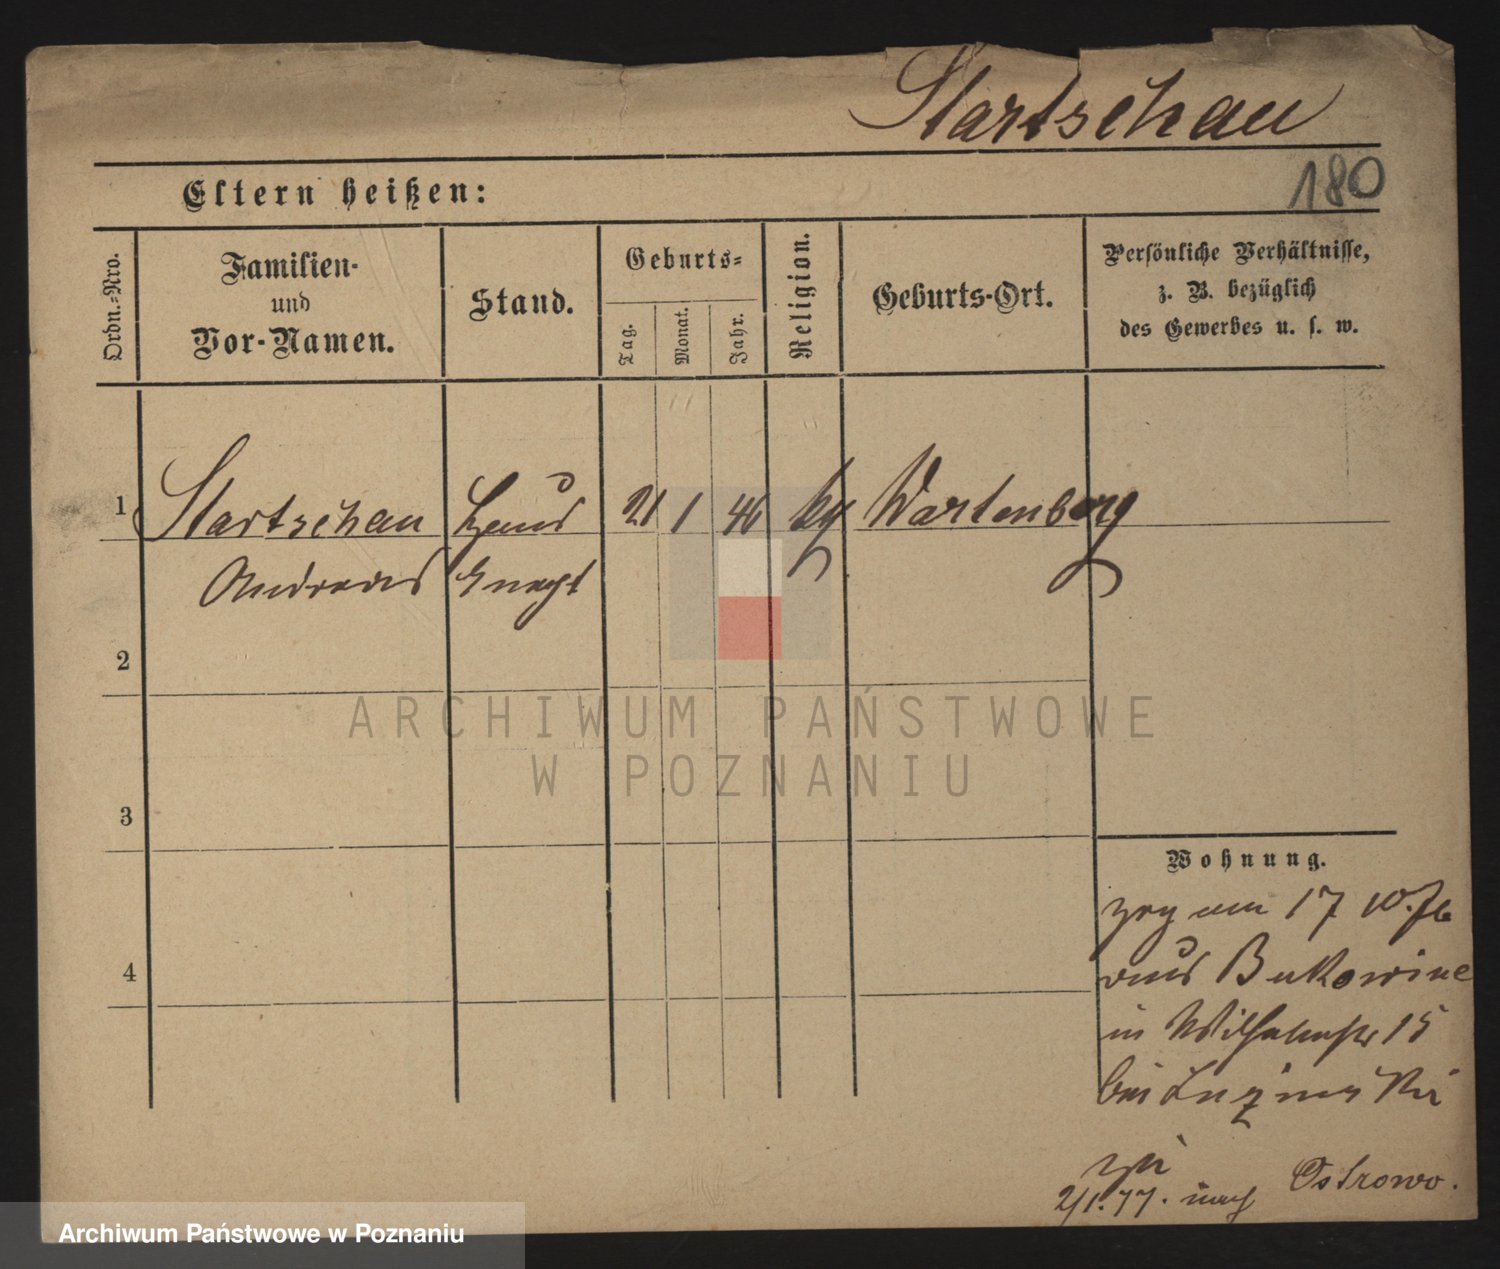 Startschau
180
Eltern heißen:
Ordn.-Nro.
Familien-
und
Vor-Namen.
Stand.
Geburts-
Tag.
Monat.
Jahr.
Religion.
Geburts-Ort.
Persönliche Verhältnisse,
z. B. bezüglich
des Gewerbes u. s. w.
1 Startschau Haus 21 1 46 kg Wartenberg
Andreas knecht
2
3
4
Wohnung.
zog am 17 10. 76
aus Bukowine
in Wilhelmstr 15
bei
2/1. 77. nach Ostrowo.
ARCHIWUM PAŃSTWOWE
W POZNANIU
Archiwum Państwowe w Poznaniu